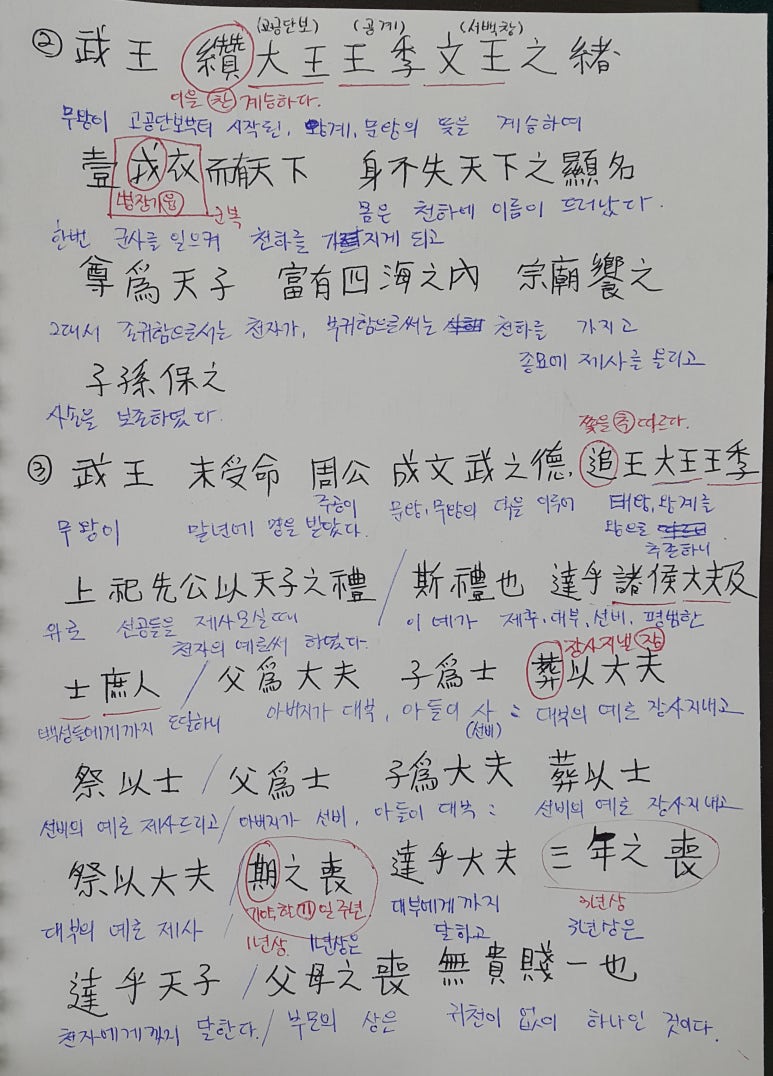 (고공단보) (공계) (서백창)
② 武王 纘 大王 王季 文王之緖
이을 찬 계승하다.
무왕이 고공단보부터 시작된, 왕계, 문왕의 뜻을 계승하여
壹戎衣而有天下 身不失天下之顯名
병장기 융 군복
몸은 천하에 이름이 드러났다.
한번 군사를 일으켜 천하를 가지게 되고
尊爲天子 富有四海之內 宗廟饗之
그래서 존귀함으로서는 천자가, 부귀함으로써는 천하를 가지고
종묘에 제사를 올리고
子孫保之
자손을 보존하였다.
쫓을 추 따르다.
③ 武王 末受命 周公 成文武之德, 追王大王王季
무왕이 말년에 명을 받았다. 주공이 문왕, 무왕의 덕을 이루어 태왕, 왕계를
왕으로 추존하니
上祀先公以天子之禮 / 斯禮也 達乎諸侯大夫及
위로 선공들을 제사모실때 이 예가 제후, 대부, 선비, 평범한
천자의 예로써 하였다.
장사지낼 장
士庶人 / 父爲大夫 子爲士 葬以大夫
백성들에게까지 도달하니 아버지가 대부, 아들이 사: 대부의 예로 장사지내고
(선비)
祭以士 / 父爲士 子爲大夫 葬以士
선비의 예로 제사드리고 / 아버지가 선비, 아들이 대부: 선비의 예로 장사지내고
祭以大夫 / 期之喪 達乎大夫 三年之喪
기약할 기 일주년. 대부에게까지 3년상
대부의 예로 제사 / 1년상. 1년상은 달하고 3년상은
達乎天子 / 父母之喪 無貴賤一也
천자에게까지 달한다. / 부모의 상은 귀천이 없이 하나인 것이다.